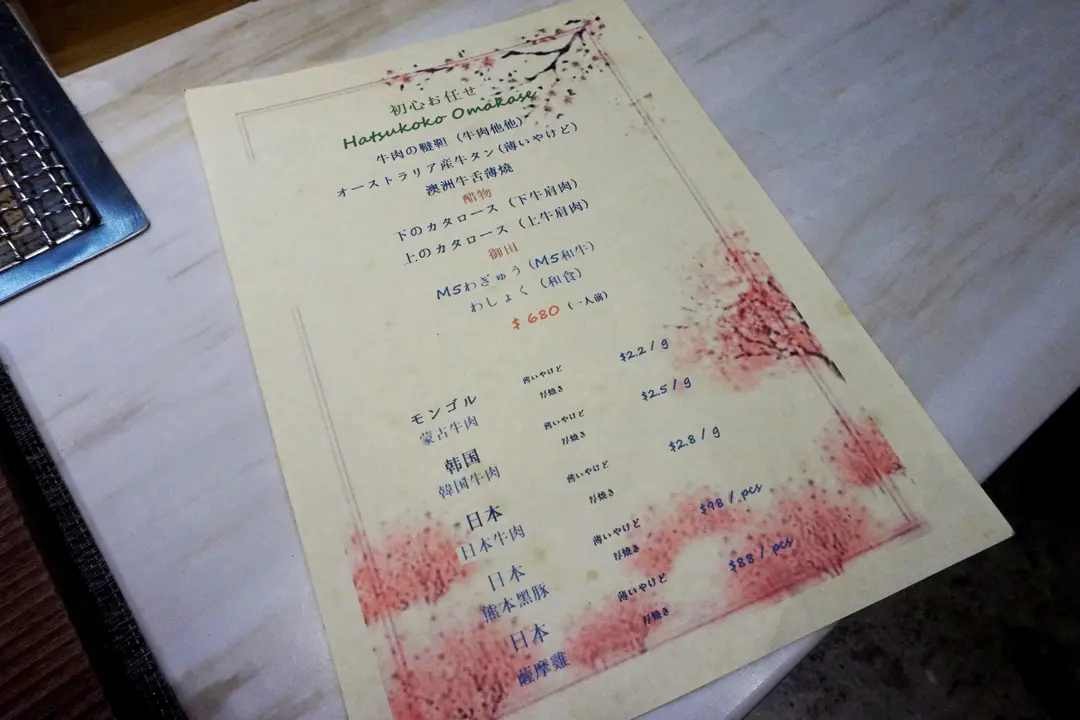 初心お任せ
Hatsukoko Omakase
牛肉の韃靼（牛肉他他）
オーストラリア産牛タン（薄いやけど）
澳洲牛舌薄燒
醋物
下のカタロース（下牛肩肉）
上のカタロース（上牛肩肉）
御田
M5わぎゅう（M5和牛）
わしょく（和食）
$680（一人前）
モンゴル 薄いやけど $2.2 / g
蒙古牛肉 厚焼き
韩国 薄いやけど $2.5 / g
韓国牛肉 厚焼き
日本 薄いやけど $2.8 / g
日本牛肉 厚焼き
日本 薄いやけど $98 / pcs
熊本黑豚 厚焼き
日本 薄いやけど $88 / pcs
薩摩雞 厚焼き